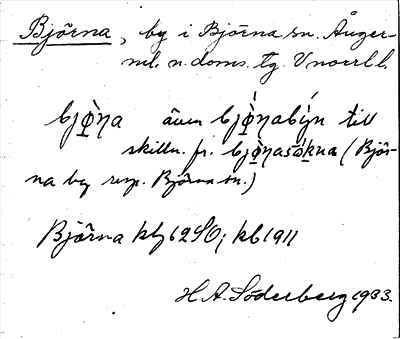 Björna, by i Björna sn. Ånger-
ml. n. doms. tg. V norrl l.
bjø̀ṇa även bjǿṇabýn till
skilln. fr. bjø̀ṇasǿkna (Björ-
na by resp. Björna sn.)
Björna kbg 62 SO; kb 1911
H A. Söderberg 1933.